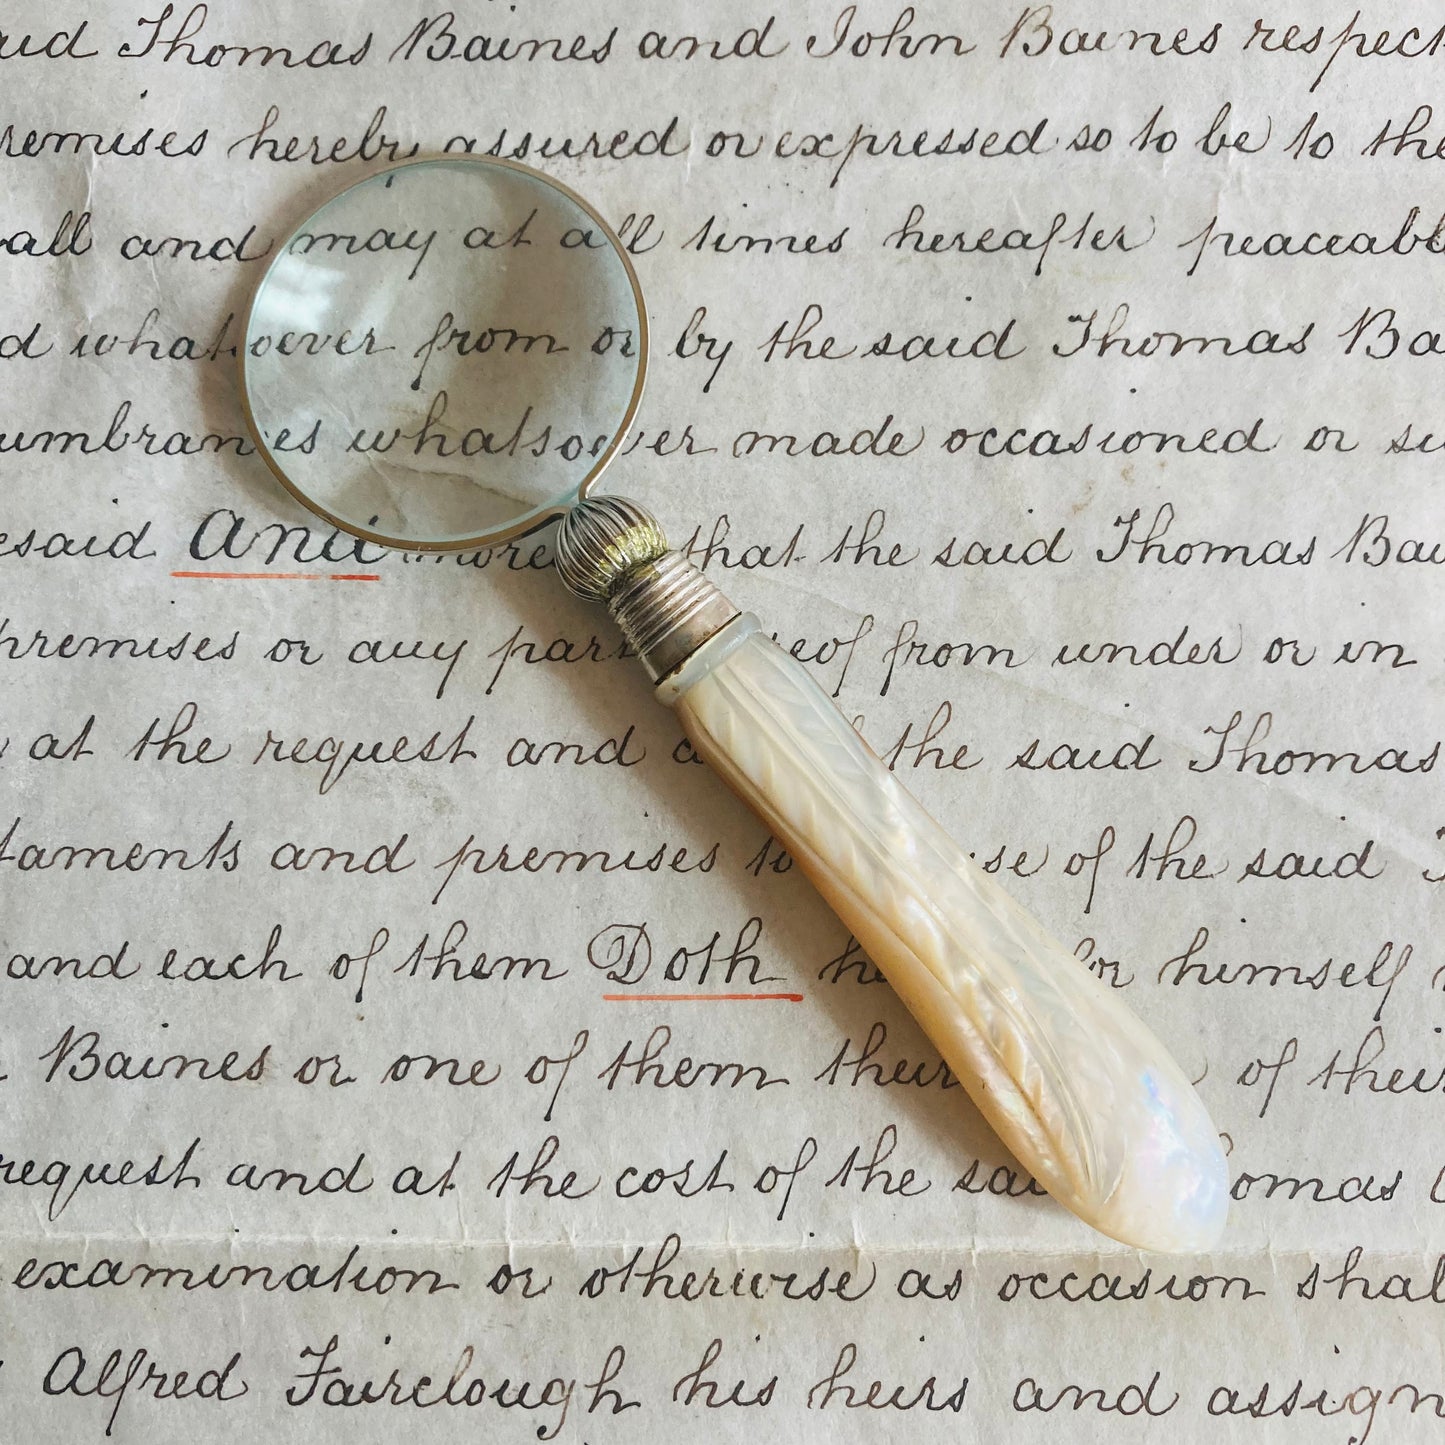 said Thomas Baines and John Baines respect
remises hereby assured or expressed so to be to the
all and may at all times hereafter peaceabl
d whatsoever from or by the said Thomas Ba
umbrances whatsoever made occasioned or su
esaid And more that the said Thomas Bai
premises or any part reof from under or in
at the request and the said Thomas
taments and premises to se of the said
and each of them Doth he for himself
Baines or one of them their of their
request and at the cost of the said Thomas
examination or otherwise as occasion shal
Alfred Fairclough his heirs and assign